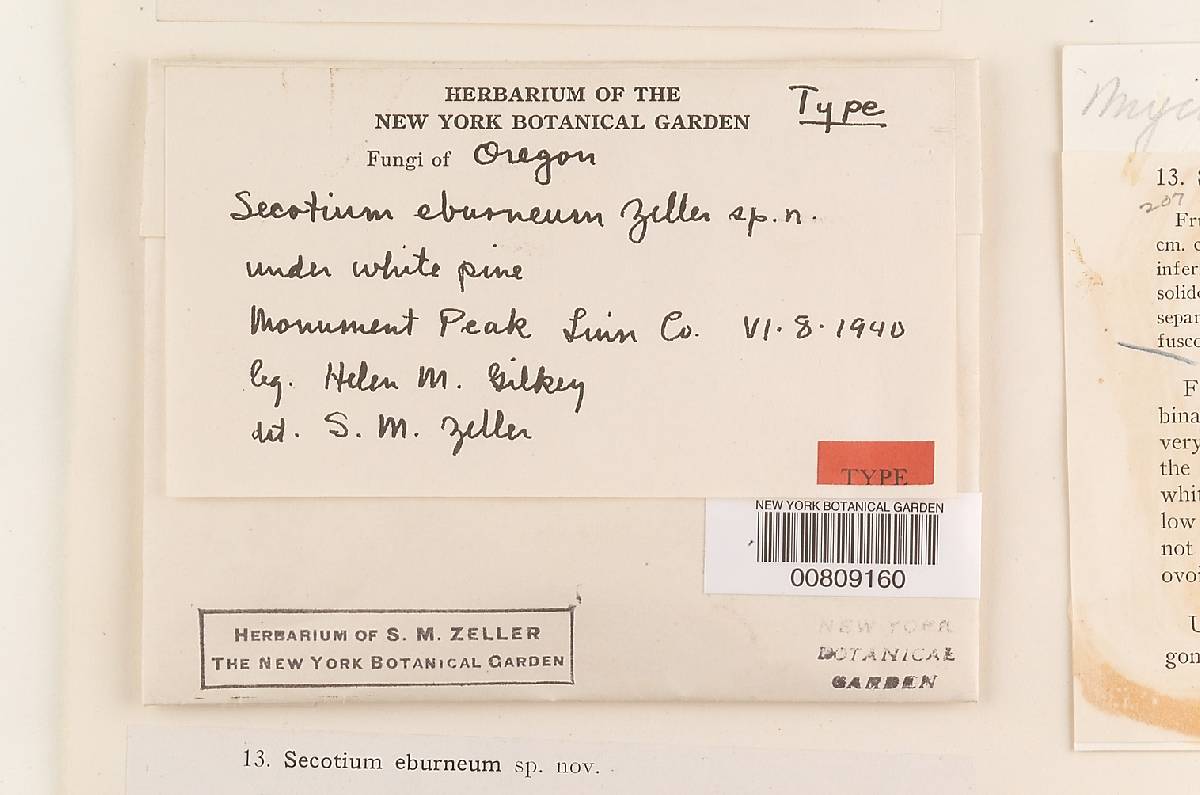 HERBARIUM OF THE
NEW YORK BOTANICAL GARDEN
Type
Fungi of Oregon
Secotium eburneum Zeller sp. n.
under white pine
Monument Peak Linn Co. VI. 8. 1940
leg. Helen M. Gilkey
det. S. M. Zeller
TYPE
NEW YORK BOTANICAL GARDEN
00809160
HERBARIUM OF S. M. ZELLER
THE NEW YORK BOTANICAL GARDEN
NEW YORK
BOTANICAL
GARDEN
13. Secotium eburneum sp. nov.
13.
207
cm.
very
the
low
not